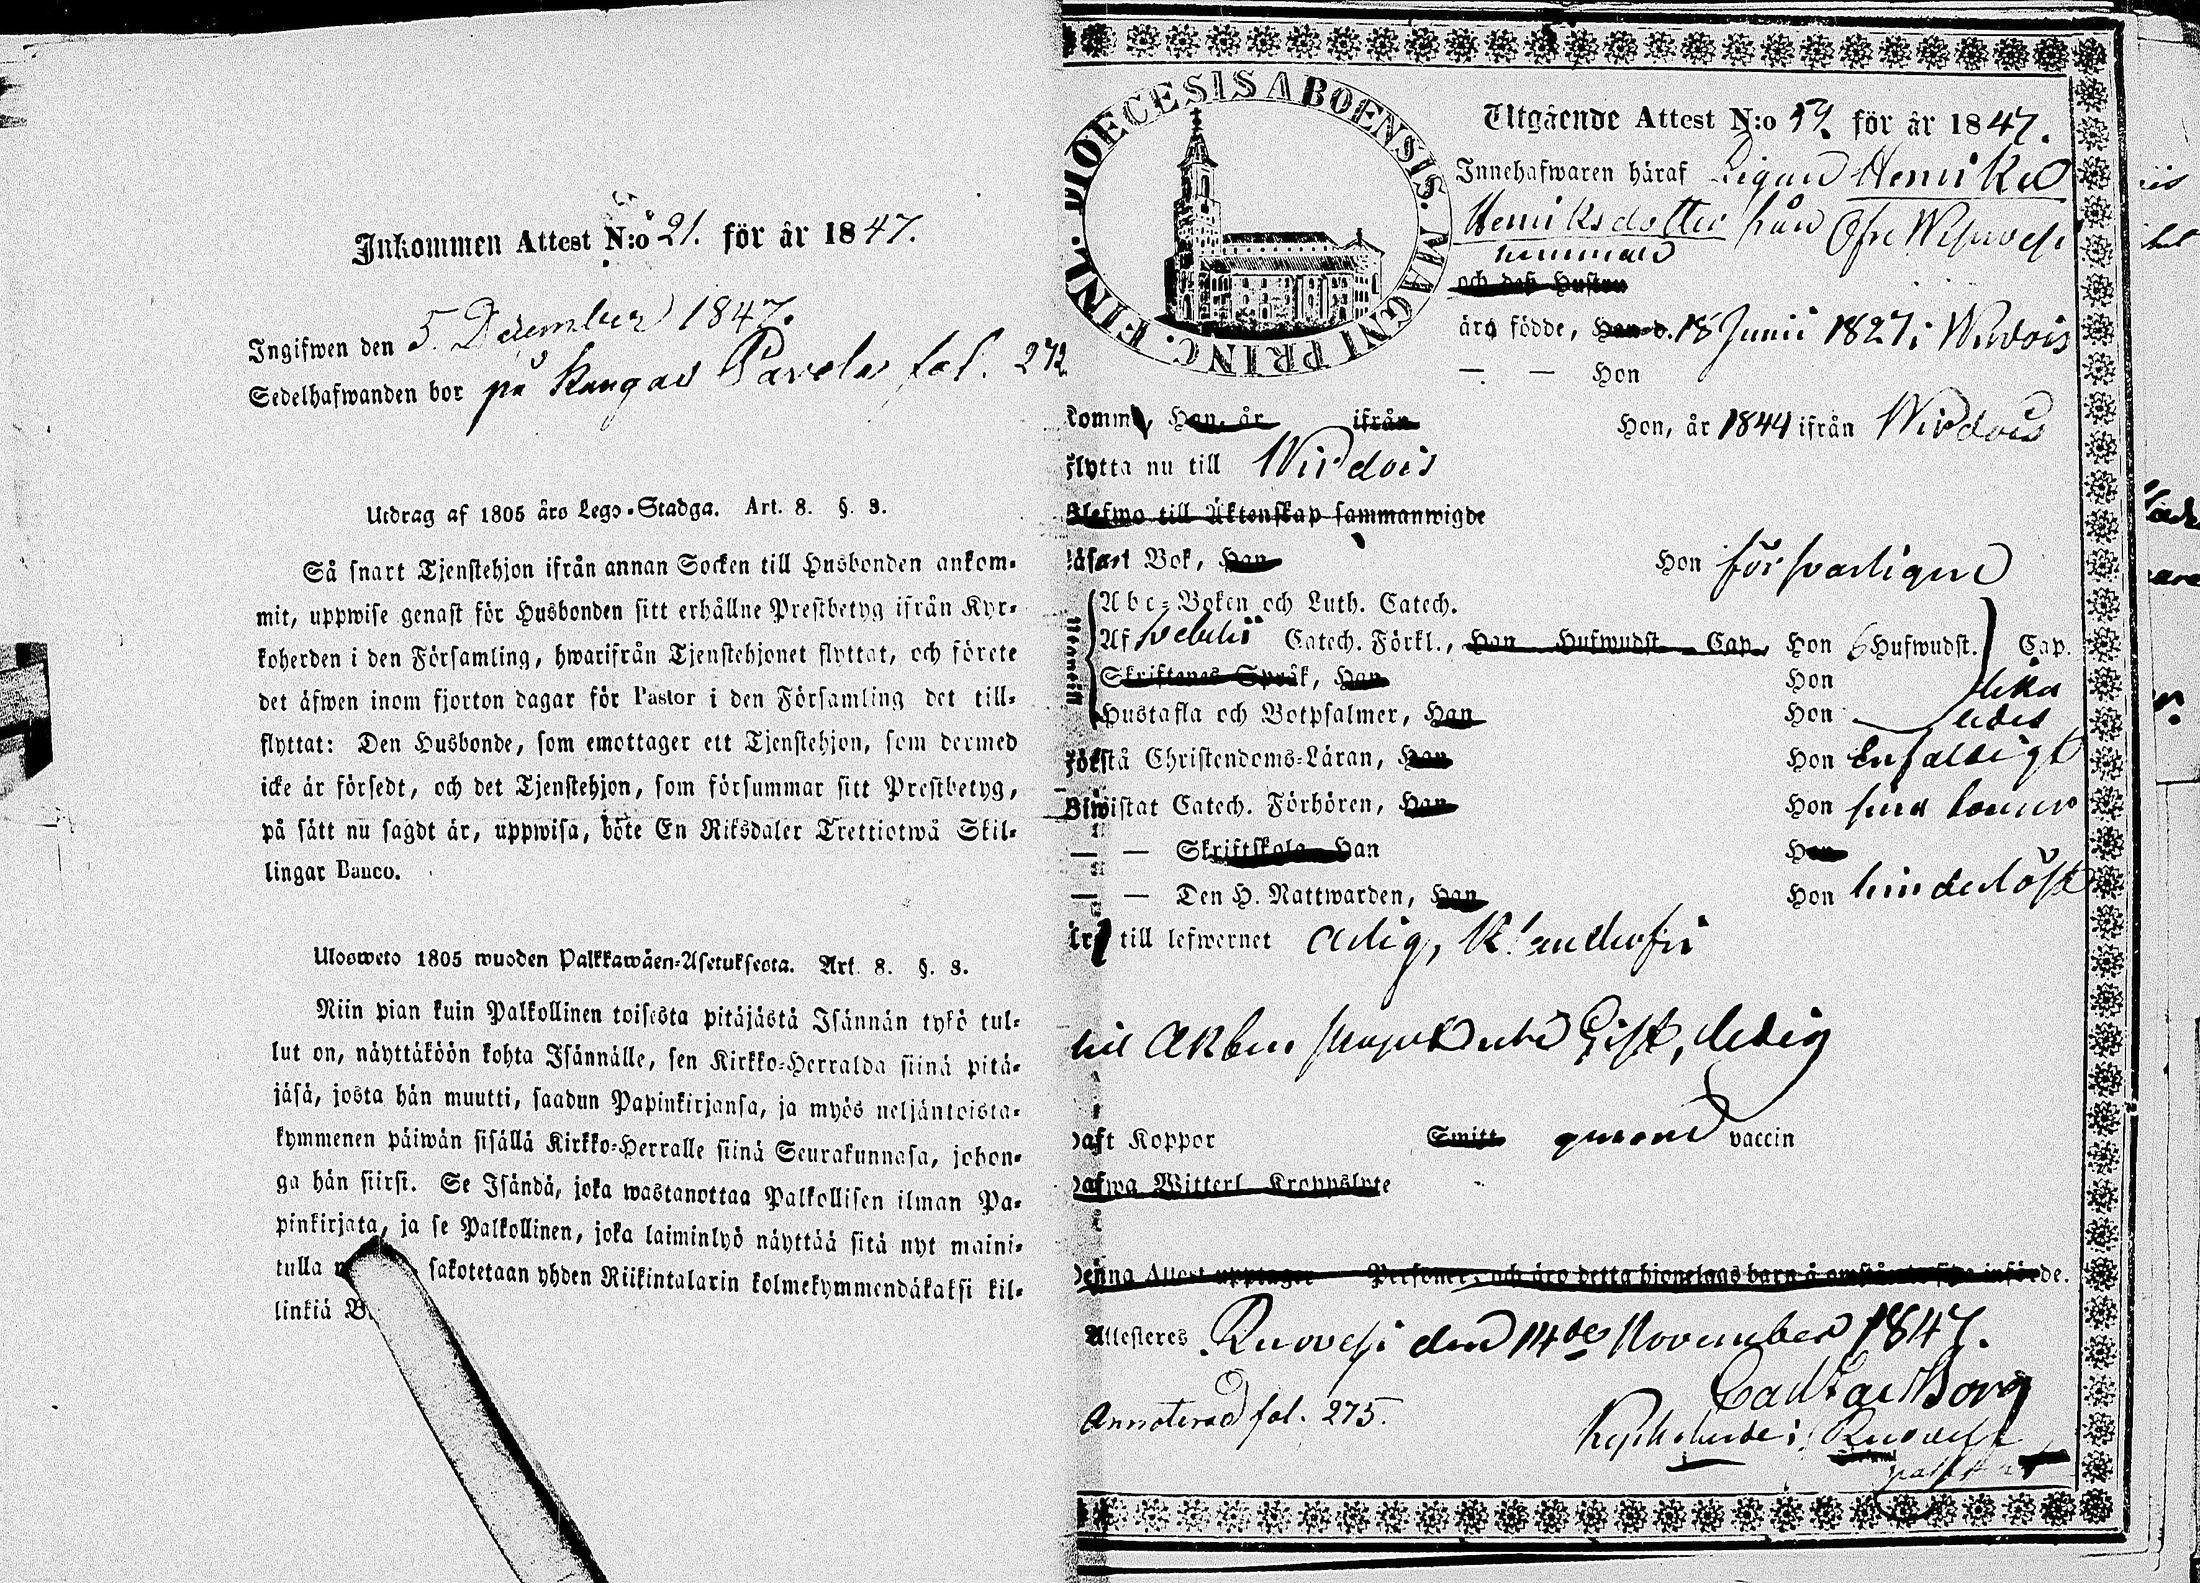 Inkommen Attest N:o 21. för år 1847.
Ingifwen den 5. December 1847.
Sedelhafwanden bor på Kangas Parela fol. 272
Utdrag af 1805 års Lego-Stadga. Art. 8. §. 3.
Så snart Tjenstehjon ifrån annan Socken till Husbonden ankom-
mit, uppwise genast för Husbonden sitt erhållne Prestbetyg ifrån Kyr-
koherden i den Församling, hwarifrån Tjenstehjonet flyttat, och förete
det äfwen inom fjorton dagar för Pastor i den Församling det till-
flyttat: Den Husbonde, som emottager ett Tjenstehjon, som dermed
icke är försedt, och det Tjenstehjon, som försummar sitt Prestbetyg,
på sätt nu sagdt är, uppwisa, böte En Riksdaler Trettiotwå Skil-
lingar Banco.
Ulosweto 1805 wuoden Palkkawäen-Asetuksesta. Art. 8. §. 3.
Niin pian kuin Palkollinen toisesta pitäjästä Isännän tykö tul-
lut on, näyttäköön kohta Isännälle, sen Kirkko-Herralda siinä pitä-
jäsä, josta hän muutti, saadun Papinkirjansa, ja myös neljäntoista-
kymmenen päiwän sisällä Kirkko-Herralle siinä Seurakunnasa, johon-
ga hän siirsi. Se Isändä, joka wastanottaa Palkollisen ilman Pa-
pinkirjata, ja se Palkollinen, joka laiminlyö näyttää sitä nyt maini-
tulla sakotetaan yhden Riikintalarin kolmekymmendäkaksi kil-
linkiä
FINL. DIOECESIS ABOENSIS. MAGNI PRINC.
Utgående Attest N:o 59. för år 1847.
Innehafwaren häraf Pigan Henrika
Henriksdotter från Öfre Wisuvesi
hemman
och dess Hustru
äro födde, Han d. 18 Junii 1827 i Wirdois
— — Hon
Komm, Han, år ifrån Hon, år 1844 ifrån Wirdois
Flytta nu till Wirdois
Blefwo till Äktenskap sammanwigde
Läsart Bok, Han Hon försvarligen
Abc-Boken och Luth. Catech.
Af Svebelii Catech. Förkl., Han Hufwudst. Cap. Hon 6 Hufwudst. Cap.
Skriftenes Språk, Han Hon lika
Hustafla och Botpsalmer, Han Hon ledes
Förstå Christendoms-Läran, Han Hon Enfaldigt
Biwistat Catech. Förhören, Han Hon sina tourer
— — Skriftskola Han Hon
— — Den H. Nattwarden, Han Hon hinderlöst
Äro till lefwernet ärlig,
till Äktenskap ledig
Haft Koppor Smitt genom vaccin
Hafwa Witterl. Kroppslyte
Denna Attest upptager Personer, och äro detta hjonelags barn å omstående sida införde.
Attesteres Ruovesi den 14de November 1847.
Annoterad fol. 275.
Kyrkoherde i Ruovesi